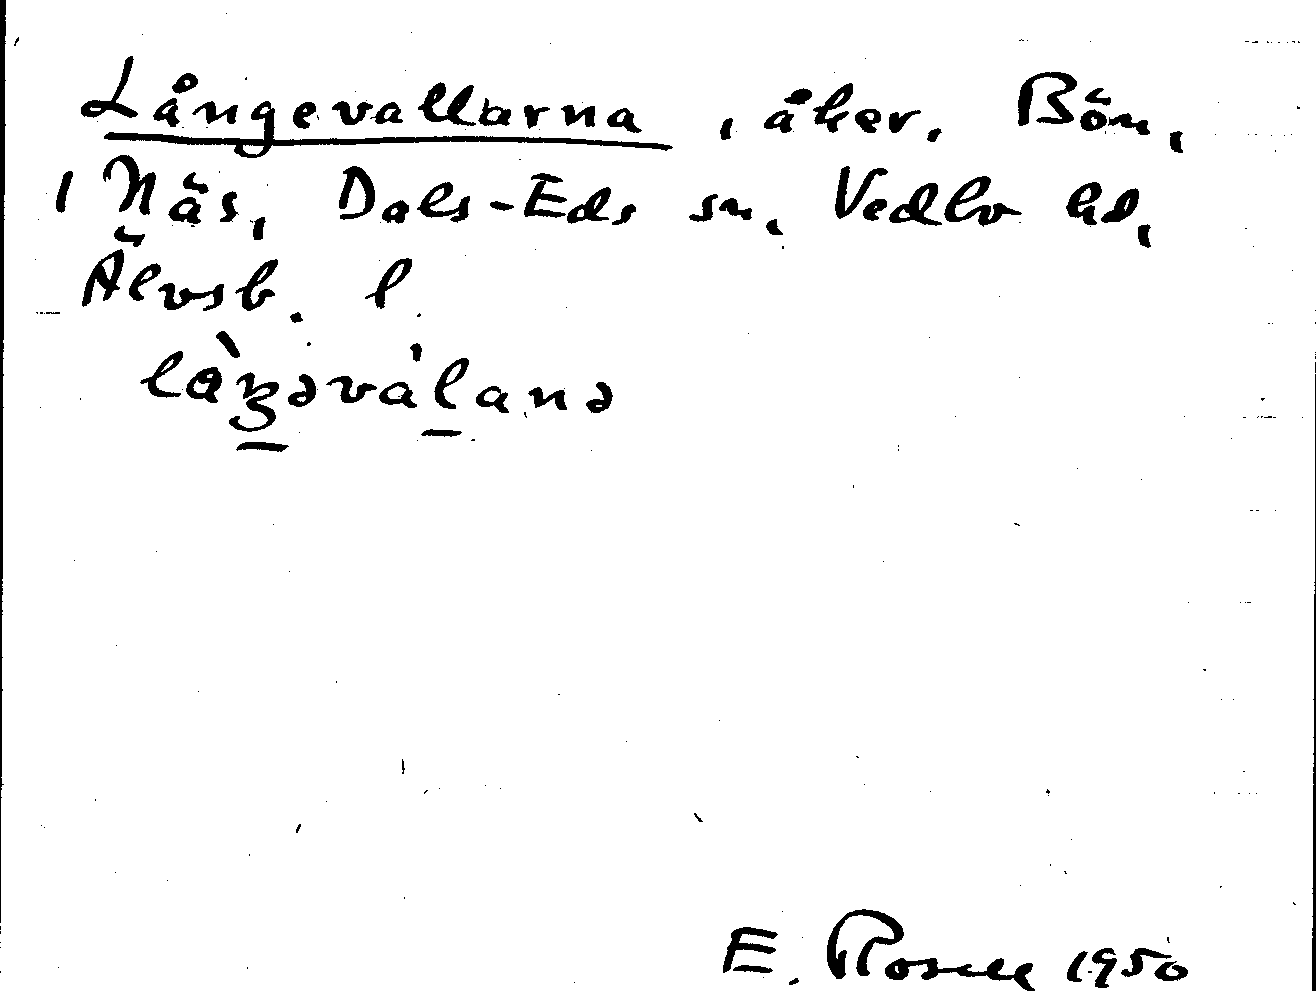 Långevallarna, åker, Bön,
1 Näs, Dals-Eds sn, Vedbo hd,
Älvsb. l.
E. Rosell 1950